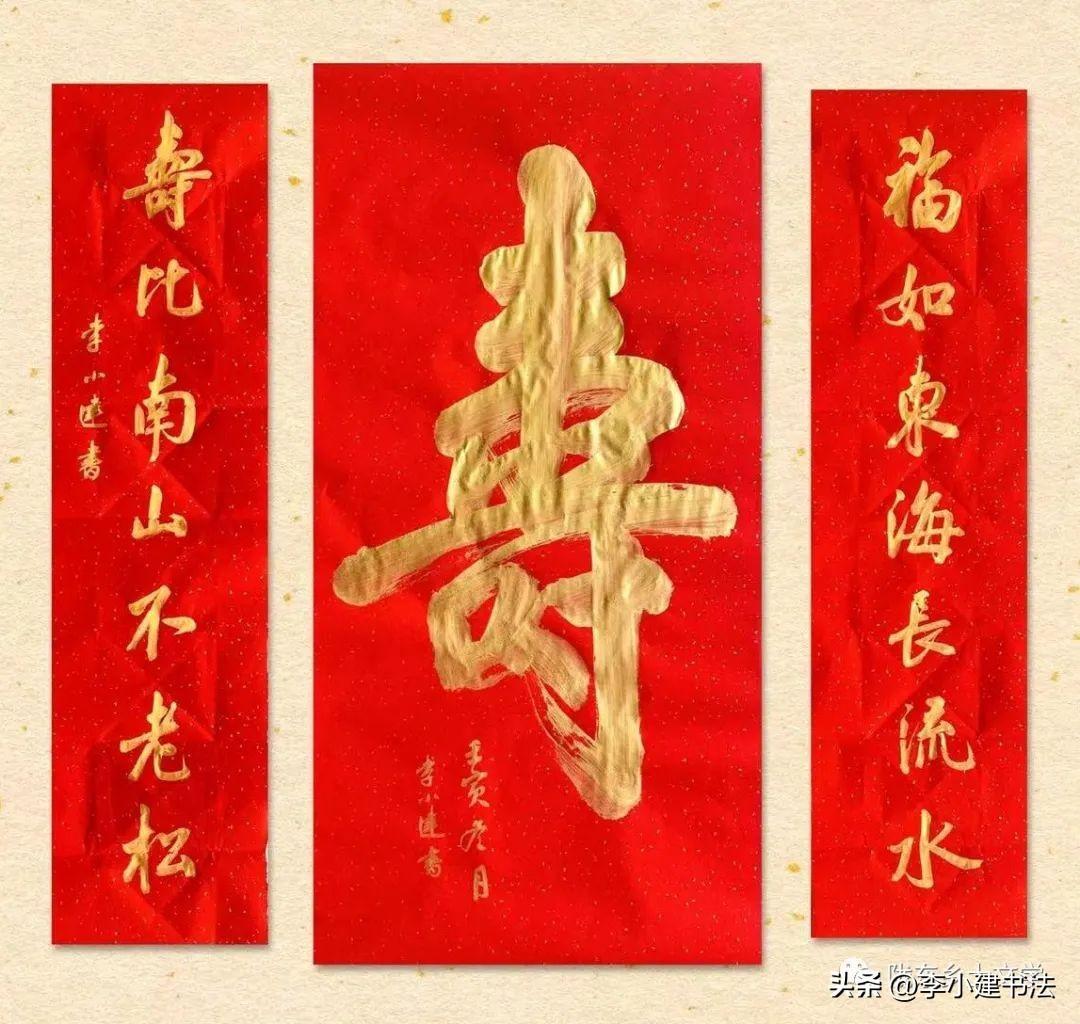 福如東海長流水
壽
壬寅冬月
李小建書
壽比南山不老松
李小建書
头条 @李小建书法